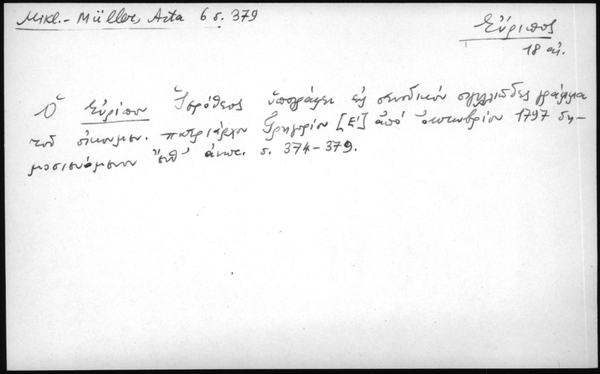 Mikl.-Müller, Acta 6 σ. 379
Εὔριπος
18 αἰ.
Ὁ Εὐρίπου Ἱερόθεος ὑπογράφει εἰς συνοδικόν σιγιλλιῶδες γράμμα
τοῦ οἰκουμεν. πατριάρχου Γρηγορίου [Ε'] ἀπό ὀκτωβρίου 1797 δη-
μοσιευόμενον ἀνωτ. σ. 374-379.